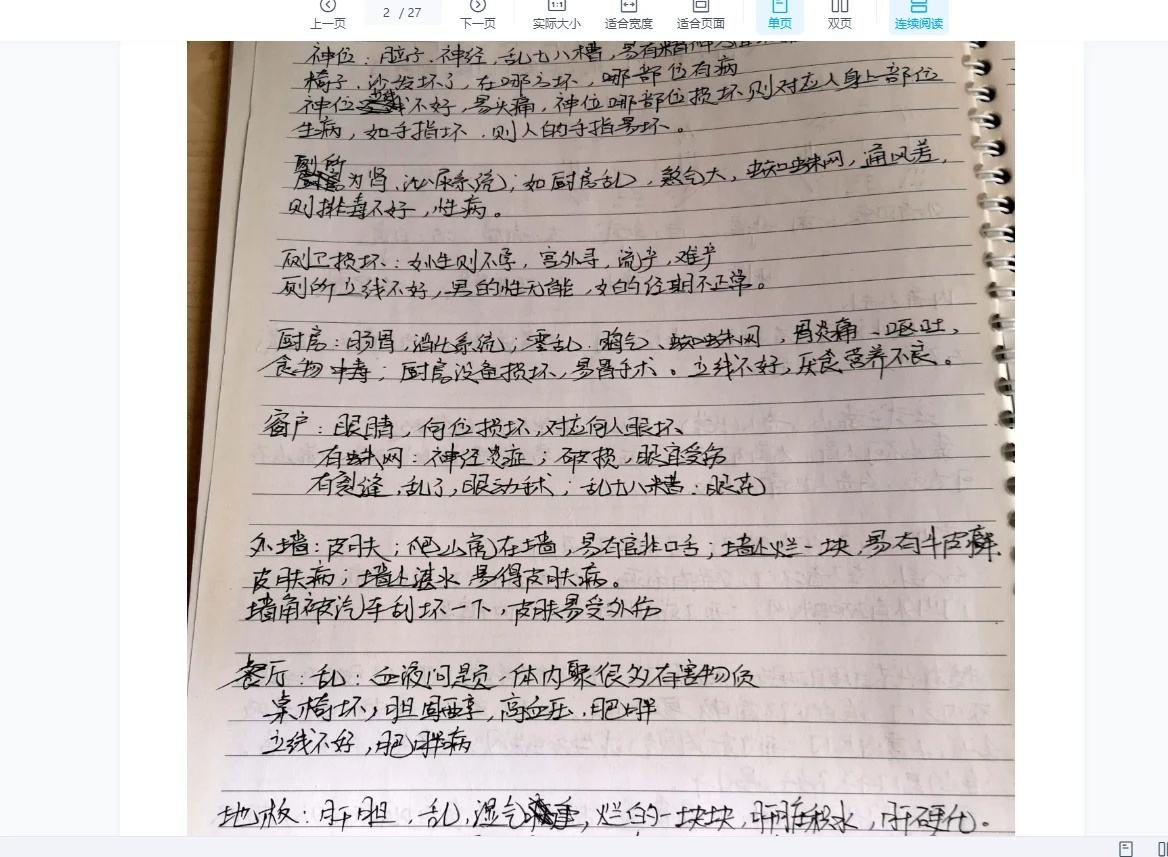 上一页
2 / 27
下一页
实际大小
适合宽度
适合页面
单页
双页
连续阅读
神位：脑子.神经,乱七八糟,易有精神
椅子.沙发坏了,在哪方坏,哪部位有病
神位不好,易头痛,神位哪部位损坏则对应人身上部位
生病,如手指坏.则人的手指易坏。
厕所
为肾,泌尿系统;如厨房乱,煞气大,蜘蛛网,通风差,
则排毒不好,性病。
厕卫损坏:女性则不孕,宫外孕,流产,难产
厕所立线不好,男的性无能,女的经期不正常。
厨房:肠胃,消化系统;零乱.蜘蛛网,胃炎痛、呕吐,
食物中毒;厨房设备损坏,易胃手术。立线不好,厌食营养不良。
窗户:眼睛,何位损坏,对应何人眼坏
有蛛网:神经炎症;破损,眼宜受伤
有裂缝,乱了,眼动手术;乱七八糟:眼花
外墙:皮肤;爬山虎在墙,易有官非口舌;墙外烂一块,易有牛皮癣.
皮肤病;墙外渗水易得皮肤病。
墙角被汽车刮坏一下,皮肤易受外伤
餐厅:乱:血液问题,体内聚很多有害物质
桌椅坏,胆固醇,高血压,肥胖
立线不好,肥胖病
地板:肝胆,乱,湿气重,烂的一块块,肝脏积水,肝硬化.